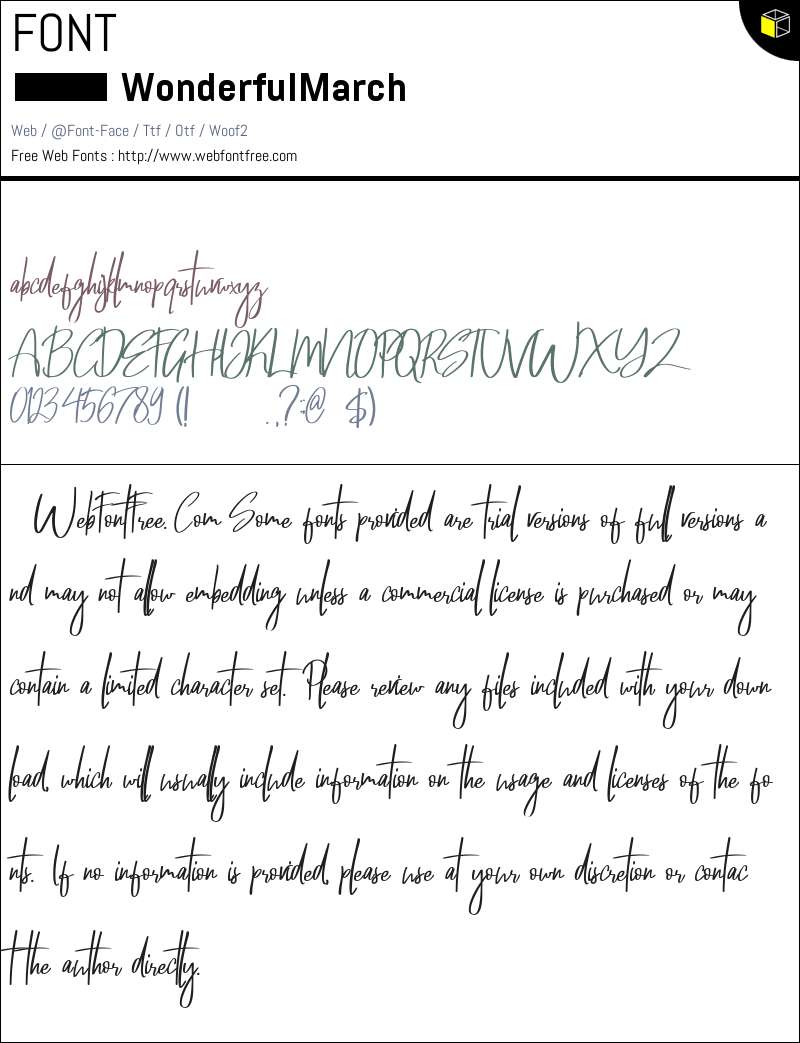 FONT
WonderfulMarch
Web / @Font-Face / Ttf / Otf / Woof2
Free Web Fonts : http://www.webfontfree.com
abcdefghijklmnopqrstuvwxyz
ABCDEFGHIJKLMNOPQRSTUVWXYZ
0123456789 (! .,?:@ $)
WebFontFree.Com Some fonts provided are trial versions of full versions a
nd may not allow embedding unless a commercial license is purchased or may
contain a limited character set. Please review any files included with your down
load, which will usually include information on the usage and licenses of the fo
nts. If no information is provided, please use at your own discretion or contac
t the author directly.